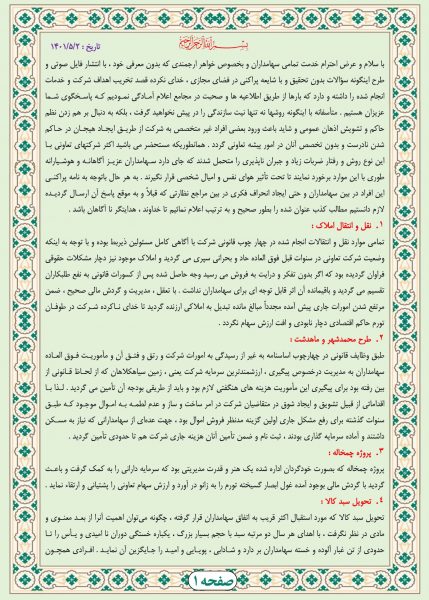 بسم الله الرحمن الرحیم
تاریخ : ۱۴۰۱/۵/۲
با سلام و عرض احترام خدمت تمامی سهامداران و بخصوص خواهر ارجمندی که بدون معرفی خود ، با انتشار فایل صوتی و
طرح اینگونه سؤالات بدون تحقیق و با شایعه پراکنی در فضای مجازی ، خدای نکرده قصد تخریب اهداف شرکت و خدمات
انجام شده را داشته و دارد که بارها از طریق اطلاعیه ها و صحبت در مجامع اعلام آمادگی نمودیم که پاسخگوی شما
عزیزان هستیم . متأسفانه با اینگونه روشها نه تنها نیت سازندگی را در پیش نخواهید گرفت ، بلکه به دنبال بر هم زدن نظم
حاکم و تشویش اذهان عمومی و شاید باعث ورود بعضی افراد غیر متخصص به شرکت از طریق ایجاد هیجان در حاکم
شدن نادرست و بدون تخصص آنان در امور بیشه تعاونی گردد . همانطوریکه مستحضر می باشید اکثر شرکتهای تعاونی با
این نوع روش و رفتار ضربات زیاد و جبران ناپذیری را متحمل شدند که جای دارد سهامداران عزیز آگاهانه و هوشیارانه
طوری با این موارد برخورد نمایند تا تحت تأثیر هوای نفس و امیال شخصی قرار نگیرند . به هر حال باتوجه به نامه پراکنی
این افراد در بین سهامداران و حتی ایجاد انحراف فکری در بین مراجع نظارتی که قبلاً و به موقع پاسخ آن ارسال گردیده
لازم دانستیم مطالب کذب عنوان شده را بطور صحیح و به ترتیب اعلام نمائیم تا خداوند ، هدایتگر نا آگاهان باشد .
۱. نقل و انتقال املاک :
تمامی موارد نقل و انتقالات انجام شده در چهار چوب قانونی شرکت با آگاهی کامل مسئولین ذیربط بوده و با توجه به اینکه
وضعیت شرکت تعاونی در سنوات قبل فوق العاده حاد و بحرانی سپری می گردید و املاک موجود نیز دچار مشکلات حقوقی
فراوان گردیده بود که اگر بدون تفکر و درایت به فروش می رسید وجه حاصل شده پس از کسورات قانونی به نفع طلبکاران
تقسیم می گردید و باقیمانده آن اثر قابل توجه ای برای سهامداران نداشت . با تعقل ، مدیریت و گردش مالی صحیح ، ضمن
مرتفع شدن امورات جاری پیش آمده مجدداً مبالغ مانده تبدیل به املاکی ارزنده گردید تا خدای ناکرده شرکت در طوفان
تورم حاکم اقتصادی دچار نابودی و افت ارزش سهام نگردد .
۲. طرح محمدشهر و ماهدشت :
طبق وظایف قانونی در چهارچوب اساسنامه به غیر از رسیدگی به امورات شرکت و رتق و فتق آن و مأموریت فوق العاده
سهامداران به مدیریت درخصوص پیگیری ، ارزشمندترین سرمایه شرکت یعنی ، زمین سیاهکلاهان که از لحاظ قانونی از
بین رفته بود برای پیگیری این مأموریت هزینه های هنگفتی لازم بود و باید از طریقی بودجه آن تأمین می گردید . لـذا بـا
اقداماتی از قبیل تشویق و ایجاد شوق در متقاضیان شرکت در امر ساخت و ساز و عدم لطمه به اموال موجـود کـه طبـق
سنوات گذشته برای رفع مشکل جاری اولین گزینه مدنظر فروش اموال بود ، جهت عده‌ای از سهامدارانی که نیاز به مسکن
داشتند و آماده سرمایه گذاری بودند ، ثبت نام و ضمن تأمین آنان هزینه جاری شرکت هم تا حدودی تأمین گردید .
۳. پروژه چمخاله :
پروژه چمخاله که بصورت خودگردان اداره شده یک هنر و قدرت مدیریتی بود که سرمایه دارانی را به کمک گرفت و باعث
گردید با گردش مالی بوجود آمده غول افسار گسیخته تورم را به زانو در آورد و ارزش سهام تعاونی را پشتیبانی و ارتقاء نماید .
۴. تحویل سبد کالا :
تحویل سبد کالا که مورد استقبال اکثر قریب به اتفاق سهامداران قرار گرفته ، چگونه می‌توان اهمیت آنرا از بعـد معنـوی و
مادی در نظر نگرفت ، با اهدای هر سال دو مرتبه سبد با حجم بسیار بزرگ ، یکباره خستگی دوران نا امیدی و یـأس را تـا
حدودی از تن غبار آلوده و خسته سهامداران بر دارد و شـادابی ، پویـایی و امیـد را جـایگزین آن نمایـد . افـرادی همچـون
صفحه ۱